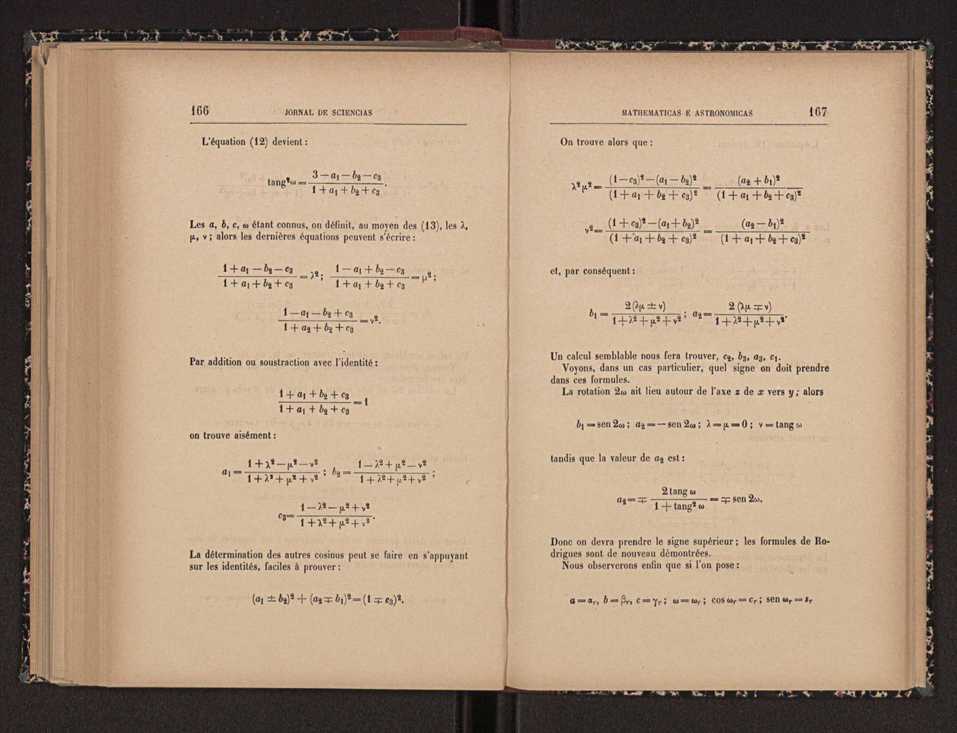 166 JORNAL DE SCIENCIAS
L'équation (12) devient :
tang²ω = (3 — a₁ — b₂ — c₃) / (1 + a₁ + b₂ + c₃) .
Les a, b, c, ω étant connus, on définit, au moyen des (13), les λ,
μ, ν ; alors les dernières équations peuvent s'écrire :
(1 + a₁ — b₂ — c₃) / (1 + a₁ + b₂ + c₃) = λ² ; (1 — a₁ + b₂ — c₃) / (1 + a₁ + b₂ + c₃) = μ² ;
(1 — a₁ — b₂ + c₃) / (1 + a₂ + b₂ + c₃) = ν².
Par addition ou soustraction avec l'identité :
(1 + a₁ + b₂ + c₃) / (1 + a₁ + b₂ + c₃) = 1
on trouve aisément :
a₁ = (1 + λ² — μ² — ν²) / (1 + λ² + μ² + ν²) ; b₂ = (1 — λ² + μ² — ν²) / (1 + λ² + μ² + ν²) ;
c₃ = (1 — λ² — μ² + ν²) / (1 + λ² + μ² + ν²) .
La détermination des autres cosinus peut se faire en s'appuyant
sur les identités, faciles à prouver :
(a₁ ± b₂)² + (a₂ ∓ b₁)² = (1 ∓ c₃)².
MATHEMATICAS E ASTRONOMICAS 167
On trouve alors que :
λ²μ² = ((1 — c₃)² — (a₁ — b₂)²) / ((1 + a₁ + b₂ + c₃)²) = ((a₂ + b₁)²) / ((1 + a₁ + b₂ + c₃)²)
ν² = ((1 + c₃)² — (a₁ + b₂)²) / ((1 + a₁ + b₂ + c₃)²) = ((a₂ — b₁)²) / ((1 + a₁ + b₂ + c₃)²)
et, par conséquent :
b₁ = 2 (λμ ± ν) / (1 + λ² + μ² + ν²) ; a₂ = 2 (λμ ∓ ν) / (1 + λ² + μ² + ν²) .
Un calcul semblable nous fera trouver, c₂, b₃, a₃, c₁.
Voyons, dans un cas particulier, quel signe on doit prendre
dans ces formules.
La rotation 2ω ait lieu autour de l'axe z de x vers y ; alors
b₁ = sen 2ω ; a₂ = — sen 2ω ; λ = μ = 0 ; ν = tang ω
tandis que la valeur de a₂ est :
a₂ = ∓ 2 tang ω / (1 + tang² ω) = ∓ sen 2ω.
Donc on devra prendre le signe supérieur ; les formules de Ro-
drigues sont de nouveau démontrées.
Nous observerons enfin que si l'on pose :
a = αᵣ, b = βᵣ, c = γᵣ ; ω = ωᵣ ; cos ωᵣ = cᵣ ; sen ωᵣ = sᵣ